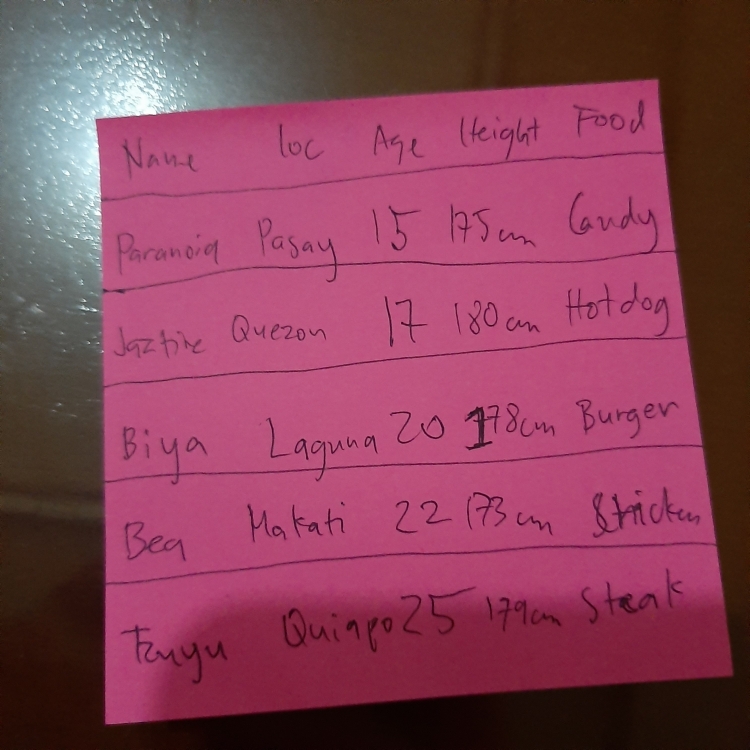 Name loc Age Height Food
Paranoia Pasay 15 175cm Candy
Jaztine Quezon 17 180cm Hotdog
Biya Laguna 20 178cm Burger
Bea Makati 22 173cm
Quiapo 25 179cm Steak